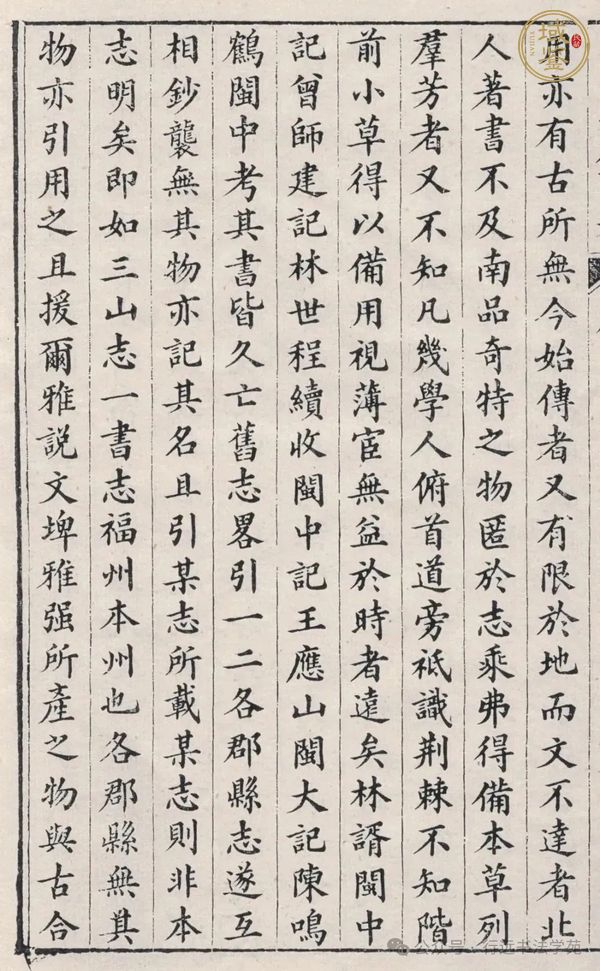 用亦有古所無今始傳者又有限於地而文不達者北
人著書不及南品奇特之物匿於志乘弗得備本草列
羣芳者又不知凡幾學人俯首道旁祇識荆棘不知階
前小草得以備用視薄宦無益於時者遠矣林諝閩中
記曾師建記林世程續收閩中記王應山閩大記陳鳴
鶴閩中考其書皆久亡舊志畧引一二各郡縣志遂互
相鈔襲無其物亦記其名且引某志所載某志則非本
志明矣即如三山志一書志福州本州也各郡縣無其
物亦引用之且援爾雅説文埤雅强所產之物與古合
域鑒
YUJIAN
公众号·行远书法学苑